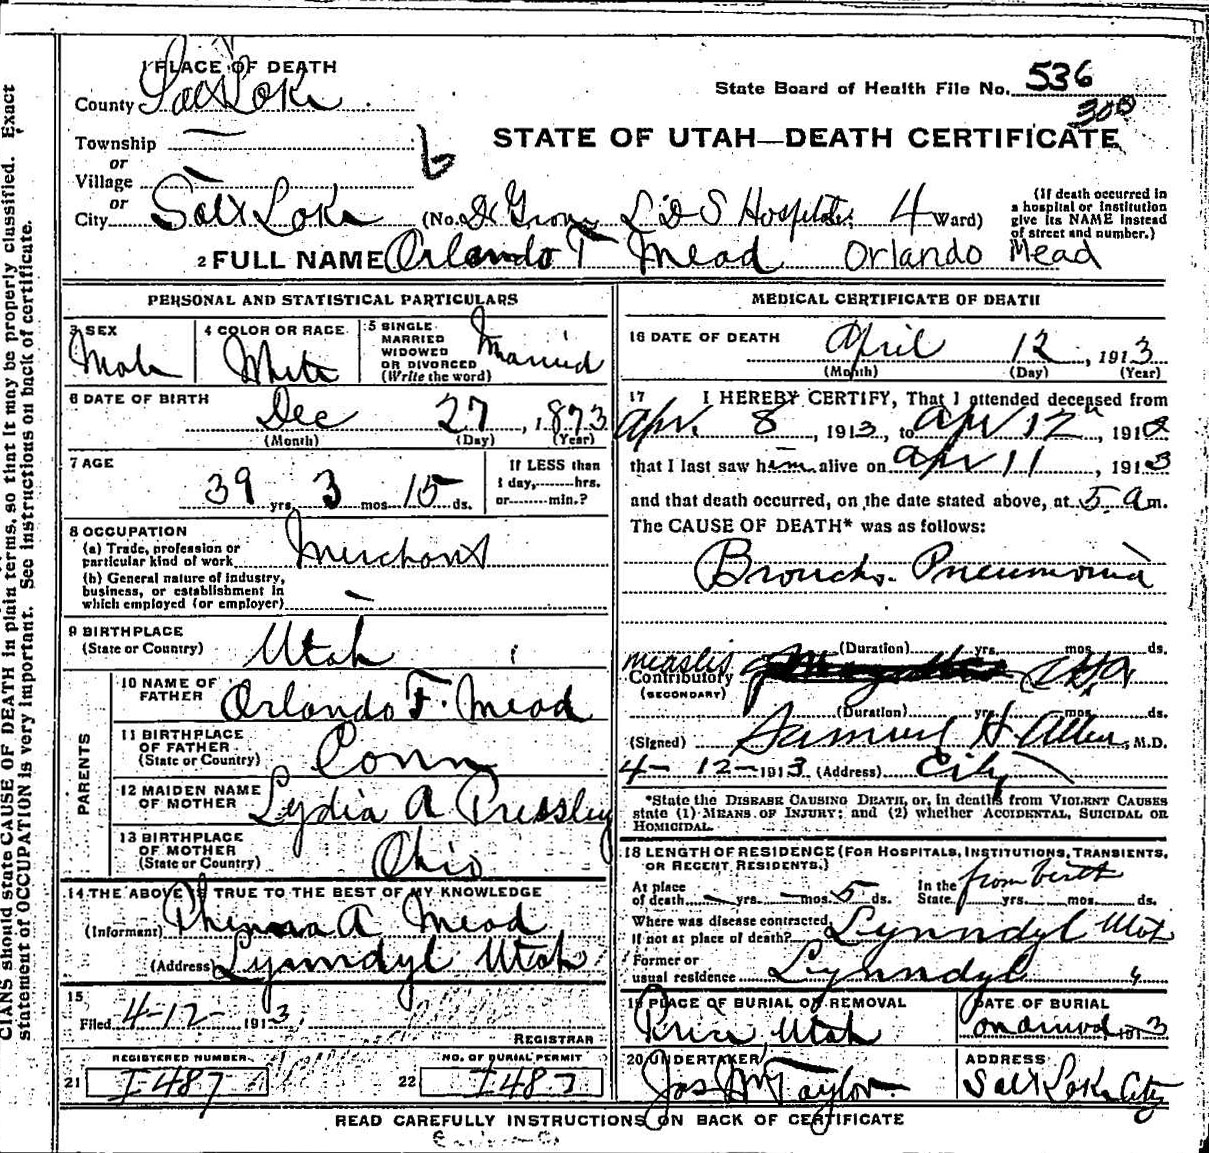 CIANS should state CAUSE OF DEATH in plain terms, so that it may be properly classified. Exact
statement of OCCUPATION is very important. See instructions on back of certificate.
1 PLACE OF DEATH
County Salt Lake
State Board of Health File No. 536
300
STATE OF UTAH—DEATH CERTIFICATE
Township
or
Village
or
City Salt Lake (No. Dr Groves L D S Hospital; 4 Ward)
(If death occurred in
a hospital or institution
give its NAME instead
of street and number.)
2 FULL NAME Orlando T Mead Orlando Mead
PERSONAL AND STATISTICAL PARTICULARS
3 SEX
Male
4 COLOR OR RACE
White
5 SINGLE
MARRIED
WIDOWED
OR DIVORCED
(Write the word)
Married
6 DATE OF BIRTH
Dec 27, 1873
(Month) (Day) (Year)
7 AGE
39 yrs. 3 mos. 15 ds.
If LESS than
1 day, hrs.
or min.?
8 OCCUPATION
(a) Trade, profession or
particular kind of work Merchant
(b) General nature of industry,
business, or establishment in
which employed (or employer) —
9 BIRTHPLACE
(State or Country) Utah
PARENTS
10 NAME OF
FATHER Orlando F. Mead
11 BIRTHPLACE
OF FATHER
(State or Country) Conn
12 MAIDEN NAME
OF MOTHER Lydia A Pressley
13 BIRTHPLACE
OF MOTHER
(State or Country) Ohio
14 THE ABOVE IS TRUE TO THE BEST OF MY KNOWLEDGE
(Informant) A Mead
(Address) Lynndyl Utah
15
Filed 4-12-1913,
REGISTRAR
REGISTERED NUMBER
21 I-487
NO. OF BURIAL PERMIT
22 I-487
MEDICAL CERTIFICATE OF DEATH
16 DATE OF DEATH
April 12, 1913
(Month) (Day) (Year)
17 I HEREBY CERTIFY, That I attended deceased from
Apr. 8, 1913, to Apr 12, 191
that I last saw him alive on Apr 11, 1913
and that death occurred, on the date stated above, at 5 am.
The CAUSE OF DEATH* was as follows:
Broncho-Pneumonia
(Duration) yrs. mos. ds.
measles
Contributory
(SECONDARY)
(Duration) yrs. mos. ds.
(Signed) Samuel H. Allen, M.D.
4-12-1913 (Address) City
*State the DISEASE CAUSING DEATH, or, in deaths from VIOLENT CAUSES
state (1) MEANS OF INJURY; and (2) whether ACCIDENTAL, SUICIDAL OR
HOMICIDAL.
18 LENGTH OF RESIDENCE (FOR HOSPITALS, INSTITUTIONS, TRANSIENTS,
OR RECENT RESIDENTS.)
At place
of death — yrs. — mos. 5 ds.
In the
State from birth yrs. mos. ds.
Where was disease contracted,
If not at place of death? Lynndyl Utah
Former or
usual residence Lynndyl "
19 PLACE OF BURIAL OR REMOVAL
Price, Utah
DATE OF BURIAL
on arrival 1913
20 UNDERTAKER
Jos Wm Taylor.
ADDRESS
Salt Lake City
READ CAREFULLY INSTRUCTIONS ON BACK OF CERTIFICATE